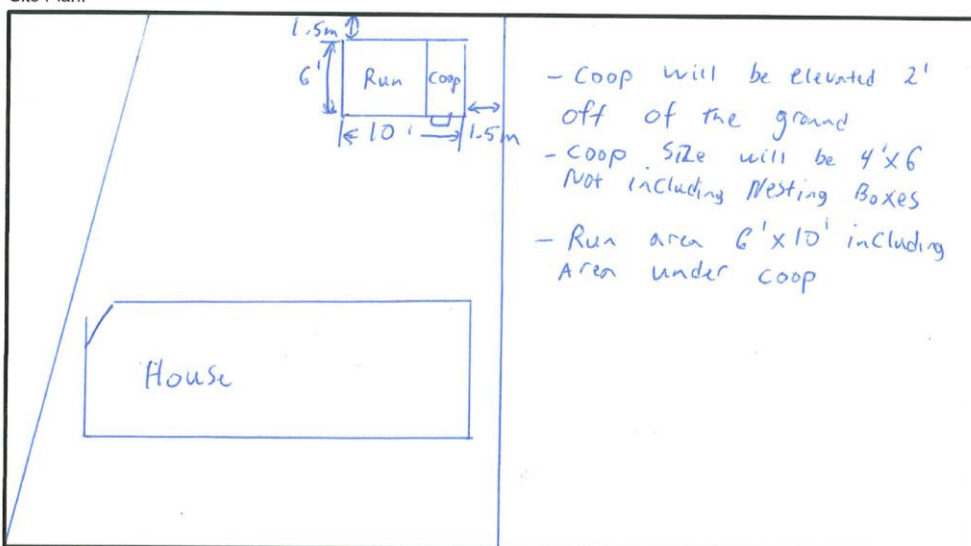 1.5m
6'
Run
Coop
10'
1.5m
- Coop will be elevated 2'
off of the ground
- Coop Size will be 4'x6
Not including Nesting Boxes
- Run area 6'x10' including
Area under coop
House